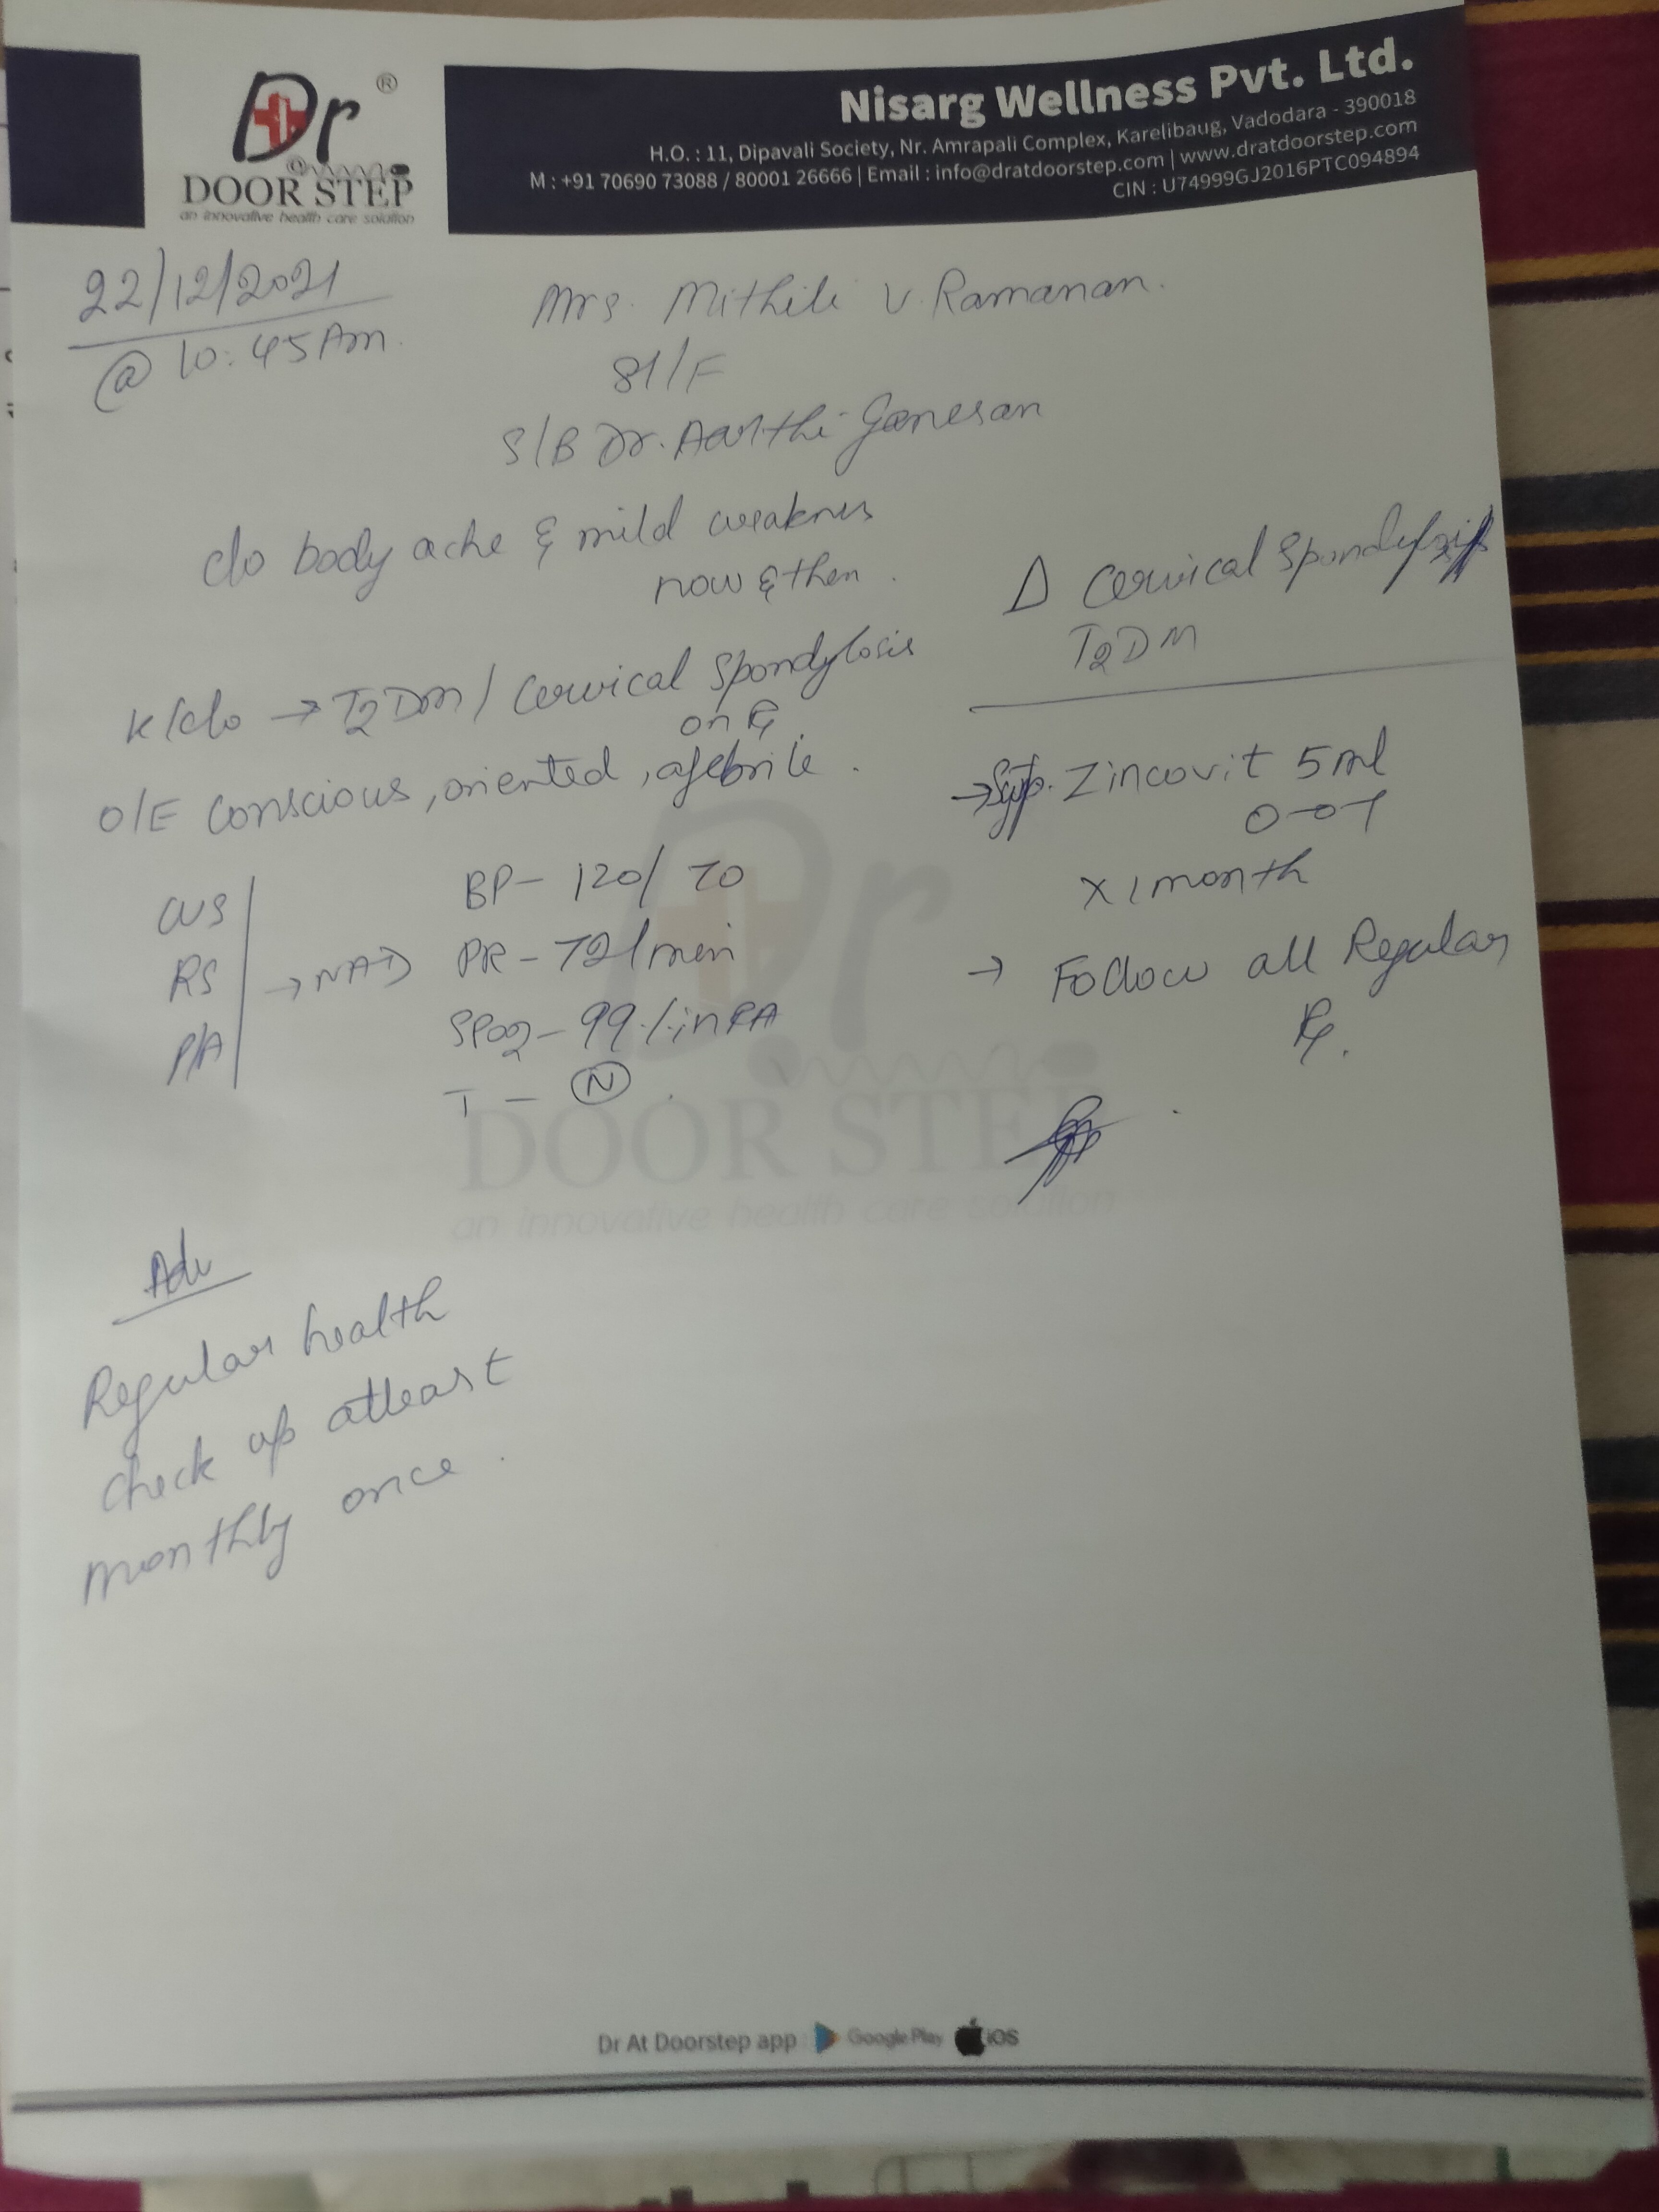 Dr ®
@
DOOR STEP
an innovative health care solution
Nisarg Wellness Pvt. Ltd.
H.O. : 11, Dipavali Society, Nr. Amrapali Complex, Karelibaug, Vadodara - 390018
M : +91 70690 73088 / 80001 26666 | Email : info@dratdoorstep.com | www.dratdoorstep.com
CIN : U74999GJ2016PTC094894
22/12/2021
@ 10:45 Am.
Mrs. Mithili V. Ramanan.
81/F
S/B Dr. Aarthi Ganesan
c/o body ache & mild weakness
now & then.
K/c/o → T2DM / Cervical Spondylosis
on Rx
O/E Conscious, oriented, afebrile.
CVS
RS → NAD
P/A
BP - 120/70
PR - 72/min
SPO2 - 99% in RA
T - N.
Δ Cervical Spondylosis
T2DM
→ Syp. Zincovit 5ml
0-0-1
x 1 month
→ Follow all Regular
Rx.
Adv
Regular health
check up atleast
monthly once.
Dr
DOOR STEP
an innovative health care solution
Dr At Doorstep app Google Play iOS